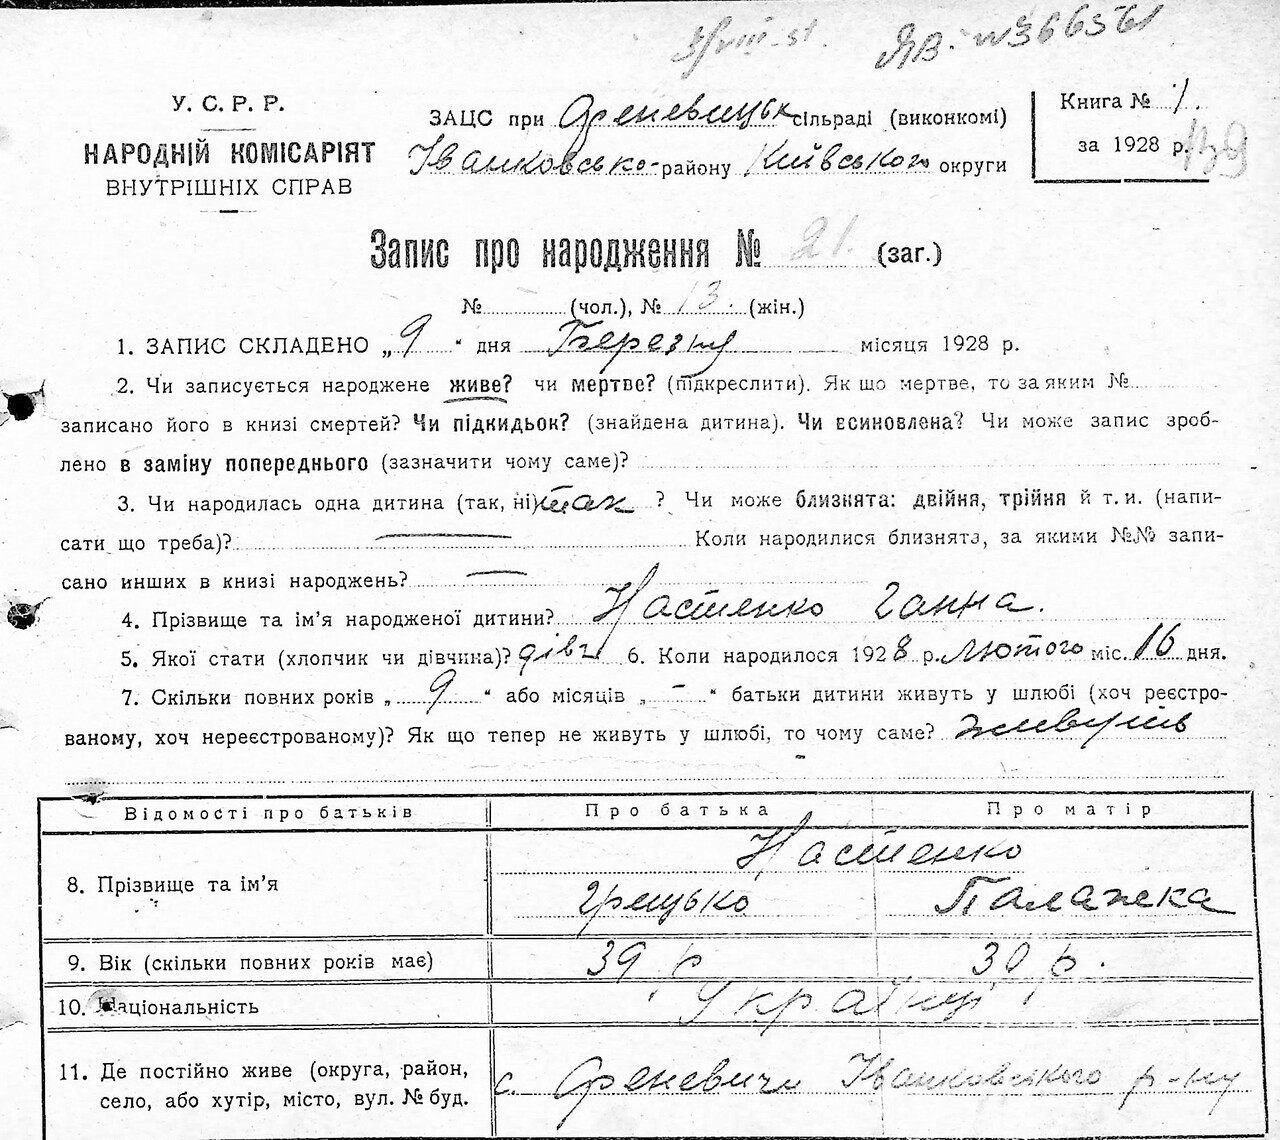 ЯВ - №366561
У. С. Р. Р.
НАРОДНІЙ КОМІСАРІЯТ
ВНУТРІШНІХ СПРАВ
ЗАЦС при Френевицьк сільраді (виконкомі)
Іванковсько-району Київського округи
Книга № 1.
за 1928 р.
Запис про народження № 21. (заг.)
№ (чол.), № 13. (жін.)
1. ЗАПИС СКЛАДЕНО „9" дня Березня місяця 1928 р.
2. Чи записується народжене живе? чи мертве? (підкреслити). Як що мертве, то за яким №
записано його в книзі смертей? Чи підкидьок? (знайдена дитина). Чи всиновлена? Чи може запис зроб-
лено в заміну попереднього (зазначити чому саме)?
3. Чи народилась одна дитина (так, ні) так ? Чи може близнята: двійня, трійня й т. и. (напи-
сати що треба)? — Коли народилися близнята, за якими №№ запи-
сано инших в книзі народжень? —
4. Прізвище та ім'я народженої дитини? Настенко Ганна.
5. Якої стати (хлопчик чи дівчина)? дівч 6. Коли народилося 1928 р. лютого міс. 16 дня.
7. Скільки повних років „9" або місяців „-" батьки дитини живуть у шлюбі (хоч реєстро-
ваному, хоч нереєстрованому)? Як що тепер не живуть у шлюбі, то чому саме? живуть
Відомості про батьків Про батька Про матір
8. Прізвище та ім'я Настенко
Грицько Палажка
9. Вік (скільки повних років має) 39 р 30 р.
10. Національність Українці
11. Де постійно живе (округа, район,
село, або хутір, місто, вул. № буд.
с. Френевичи Іванковського р-ну